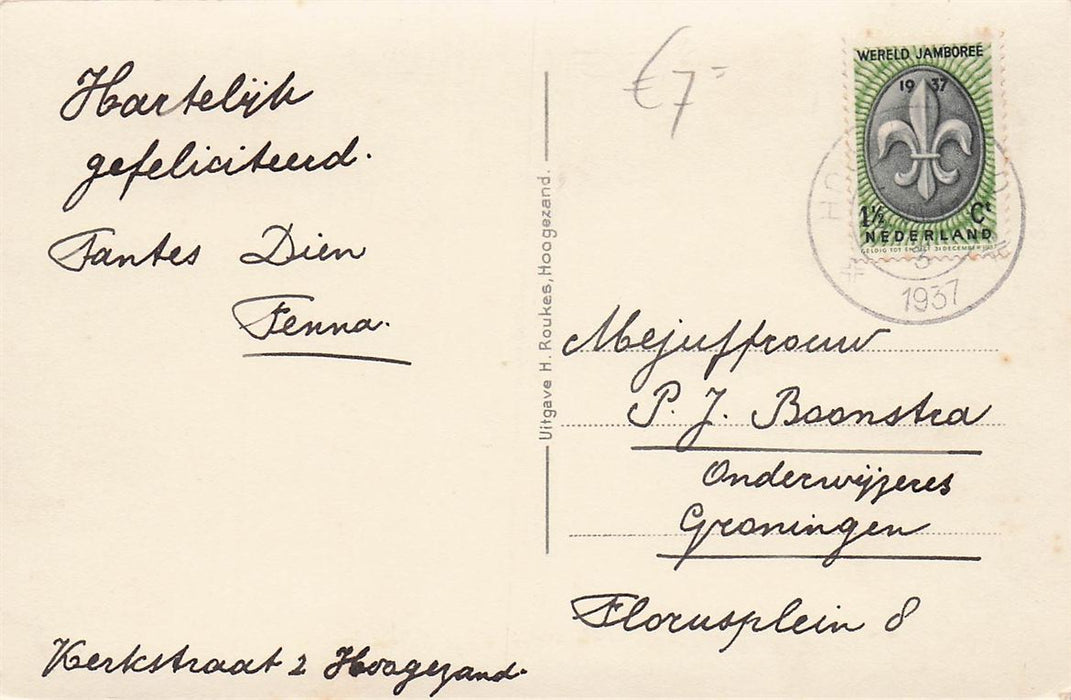 Hartelijk
gefeliciteerd.
Tantes Dien
Fenna.
Kerkstraat 2 Hoogezand.
Uitgave H. Roukes, Hoogezand.
€7=
WERELD JAMBOREE
19 37
1½ Ct
NEDERLAND
GELDIG TOT EN MET 31 DECEMBER 1937
3
1937
Mejuffrouw
P. J. Boonstra
Onderwijzeres
Groningen
Florusplein 8